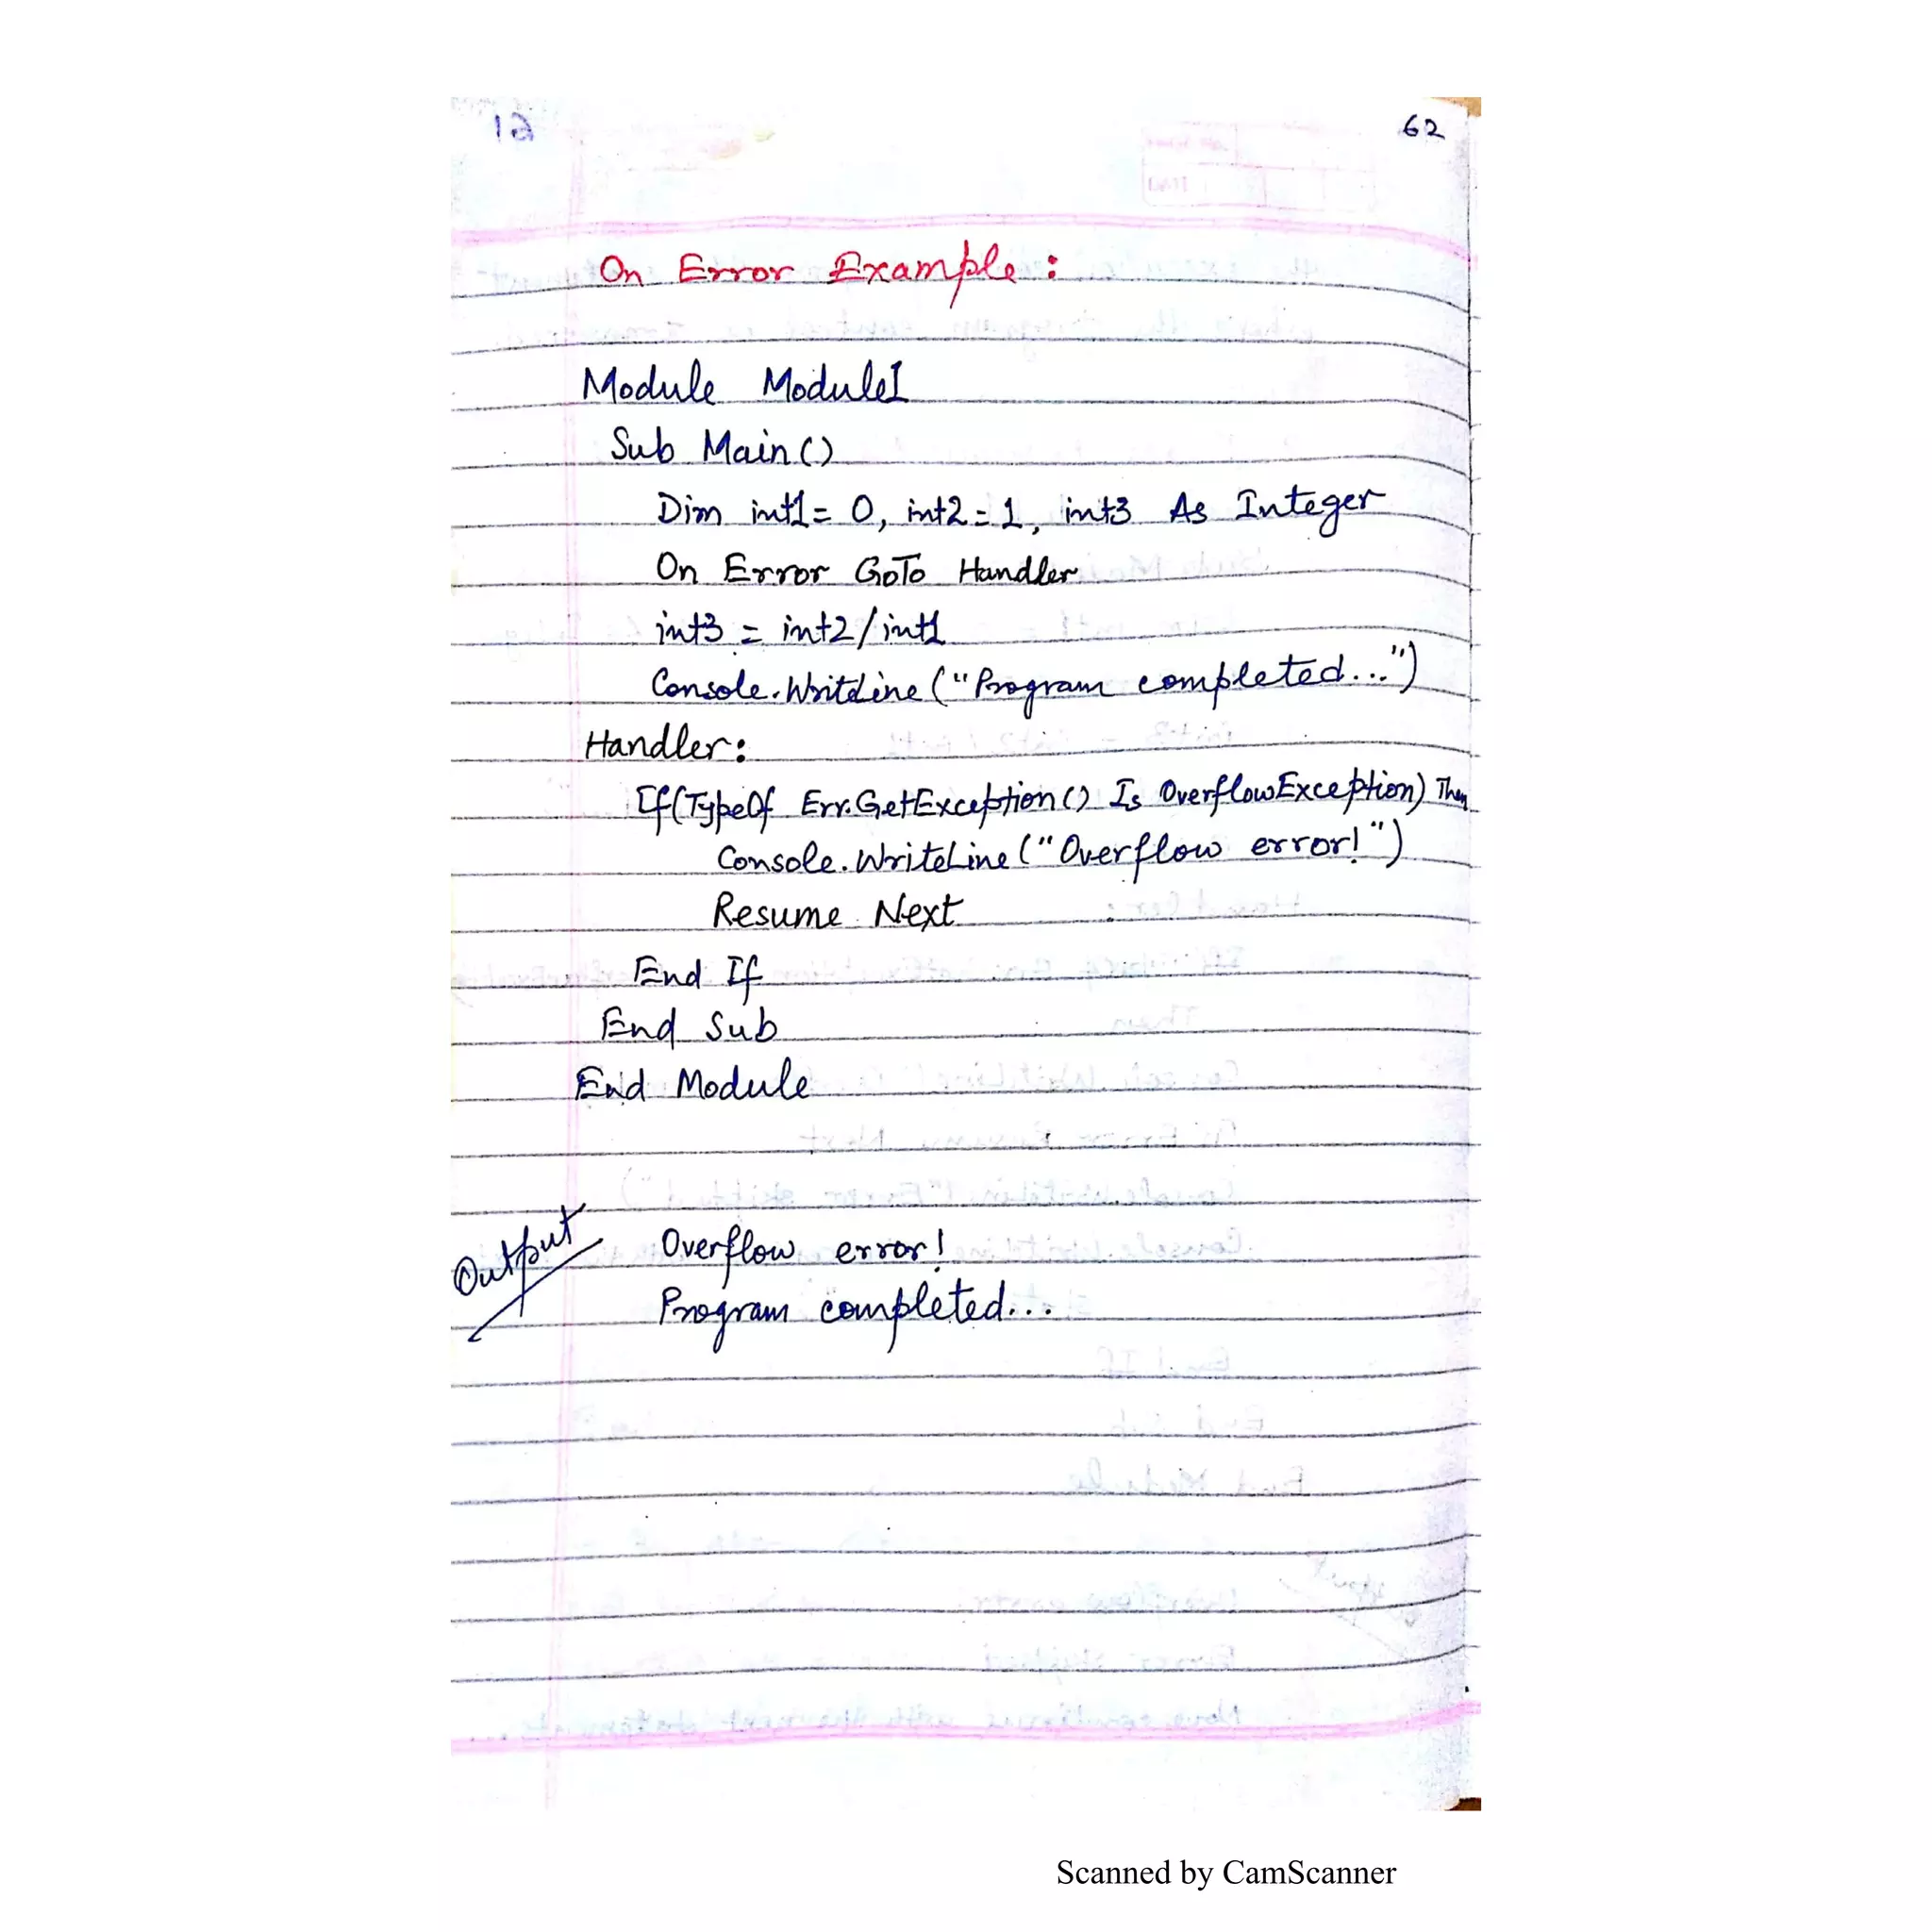 62
On Error Example :
Module Module1
Sub Main ()
Dim int1 = 0, int2 = 1, int3 As Integer
On Error GoTo Handler
int3 = int2 / int1
Console.WriteLine ("Program completed...")
Handler:
If (TypeOf Err.GetException () Is OverflowException) Then
Console.WriteLine ("Overflow error!")
Resume Next
End If
End Sub
End Module
Output
Overflow error!
Program completed...
Scanned by CamScanner